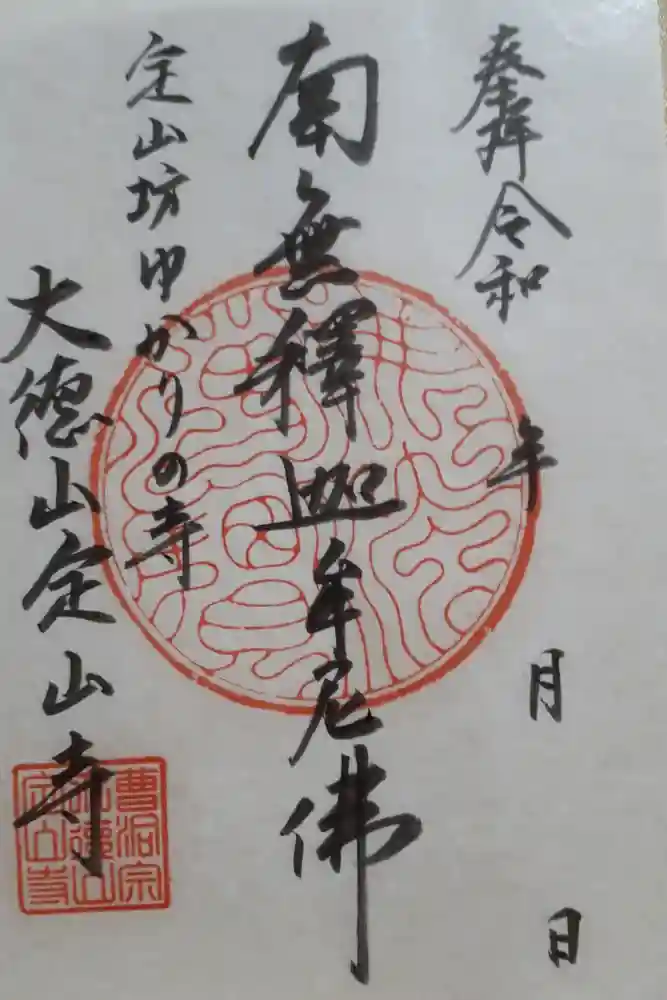 奉拝令和 年 月 日
南無釋迦牟尼佛
定山坊ゆかりの寺
大徳山定山寺
曹洞宗
大徳山
定山寺